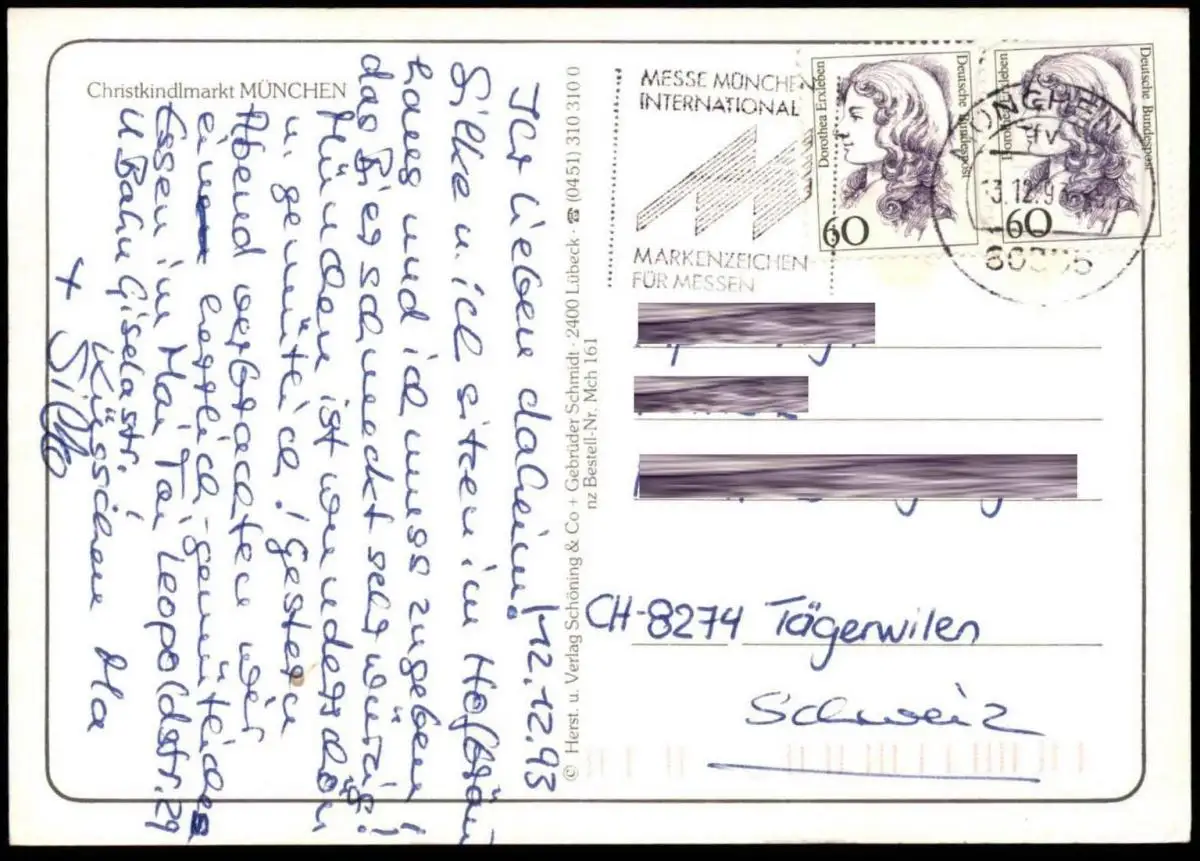 Christkindlmarkt MÜNCHEN
Ihr lieben daheim! 12.12.93
Silke u. ich sitzen im Hofbräu
haus und ich muss zugeben!
das Bier schmeckt sehr würzig!
München ist wunderschön
u. gemütlich! Gestern
Abend verbrachten wir
ein herrlich, gemütliches
Essen im Mai Tai Leopoldstr. 29
U Bahn Giselastr.!
Küsschen Ma
+ Silke
© Herst. u. Verlag Schöning & Co + Gebrüder Schmidt · 2400 Lübeck · ☎ (0451) 310 310 0
nz Bestell-Nr. Mch 161
MESSE MÜNCHEN
INTERNATIONAL
MARKENZEICHEN
FÜR MESSEN
Dorothea Erxleben
Deutsche Bundespost
60
Dorothea Erxleben
Deutsche Bundespost
60
MÜNCHEN
13.12.93
CH-8274 Tägerwilen
Schweiz